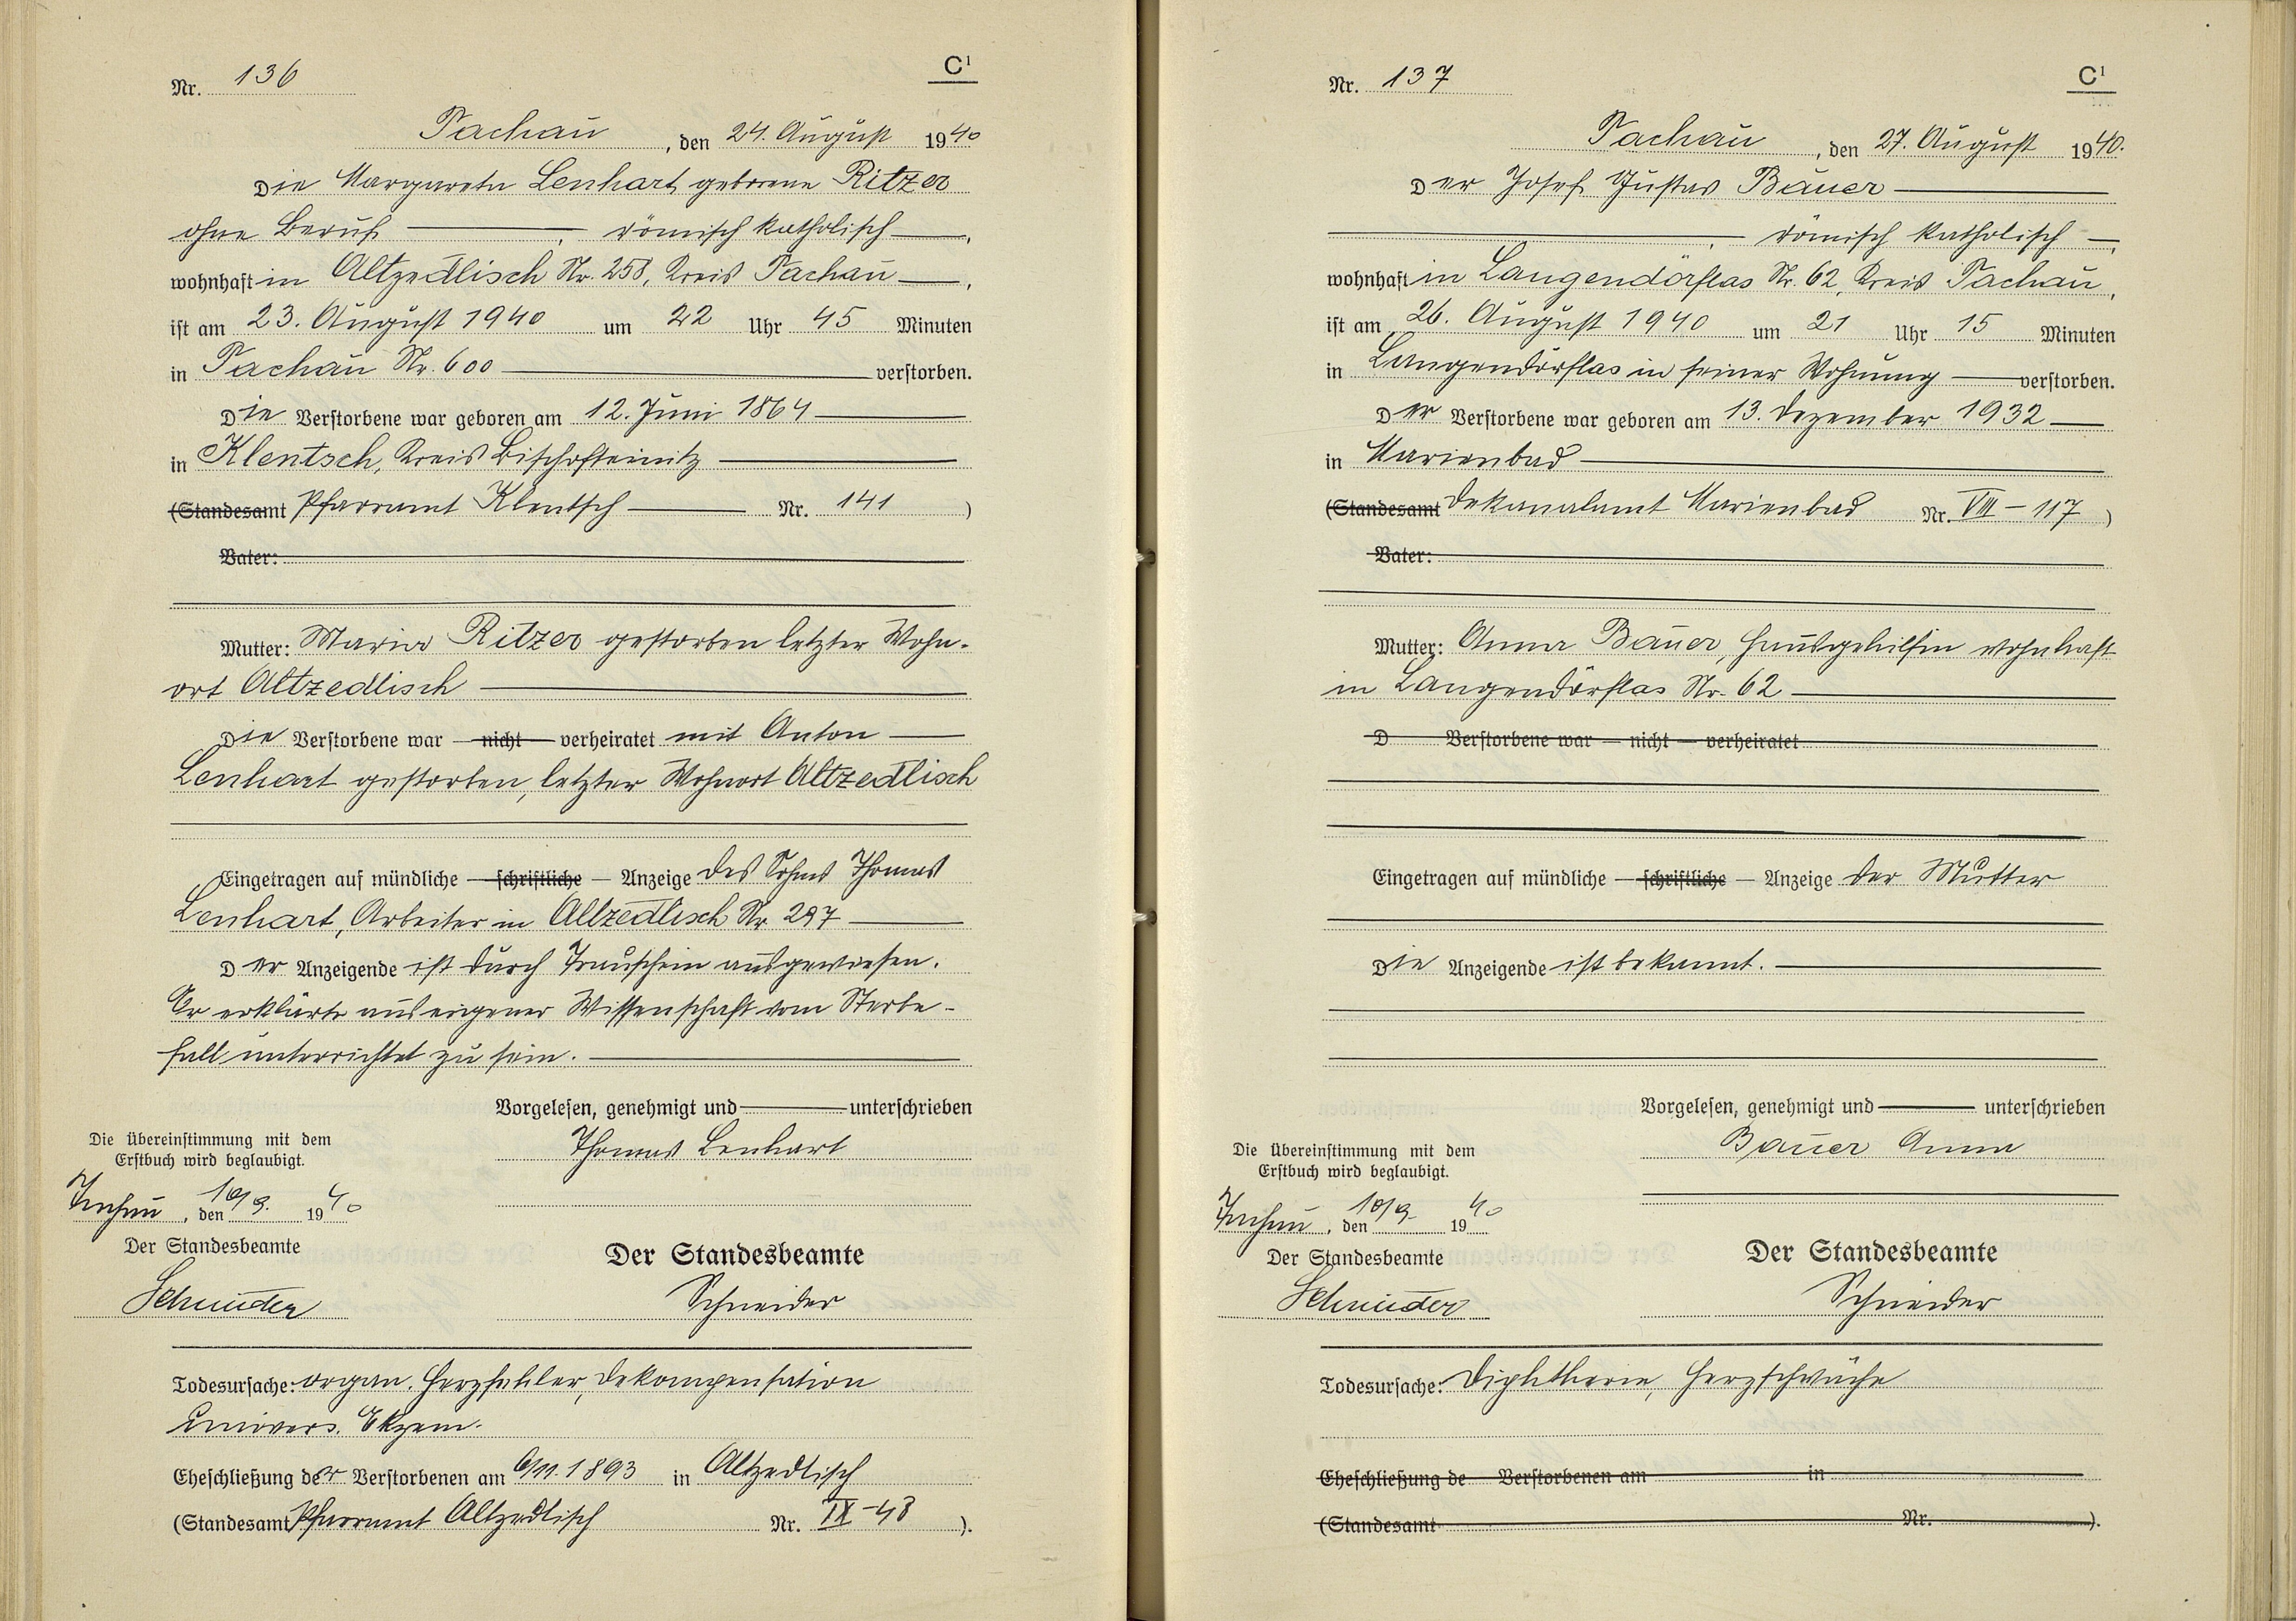 Nr. 136
C¹
Tachau, den 24. August 1940
Die Margareta Lenhart geborene Ritzer
ohne Beruf, römisch katholisch,
wohnhaft in Altzedlisch Nr. 258, Kreis Tachau,
ist am 23. August 1940 um 22 Uhr 45 Minuten
in Tachau Nr. 600 verstorben.
Die Verstorbene war geboren am 12. Juni 1864
in Klentsch, Kreis Bischofteinitz
(Standesamt Pfarramt Klentsch Nr. 141)
Vater:
Mutter: Maria Ritzer gestorben letzter Wohn-
ort Altzedlisch
Die Verstorbene war — nicht — verheiratet mit Anton
Lenhart gestorben, letzter Wohnort Altzedlisch
Eingetragen auf mündliche — schriftliche — Anzeige des Sohnes Thomas
Lenhart, Arbeiter in Altzedlisch Nr. 297
Der Anzeigende ist durch Trauschein ausgewiesen.
Er erklärte aus eigener Wissenschaft vom Sterbe-
fall unterrichtet zu sein.
Vorgelesen, genehmigt und unterschrieben
Thomas Lenhart
Die Übereinstimmung mit dem
Erstbuch wird beglaubigt.
Tachau, den 10/9. 1940
Der Standesbeamte
Schneider
Der Standesbeamte
Schneider
Todesursache: organ. Herzfehler, Dekompensation
univers. Ekzem.
Eheschließung der Verstorbenen am 6/11. 1893 in Altzedlisch
(Standesamt Pfarramt Altzedlisch Nr. IX-48).
Nr. 137
C¹
Tachau, den 27. August 1940.
Der Josef Gustav Bauer
, römisch katholisch,
wohnhaft in Langendörflas Nr. 62, Kreis Tachau,
ist am 26. August 1940 um 21 Uhr 15 Minuten
in Langendörflas in seiner Wohnung verstorben.
Der Verstorbene war geboren am 13. Dezember 1932
in Marienbad
(Standesamt Dekanalamt Marienbad Nr. VIII-117)
Vater:
Mutter: Anna Bauer, Hausgehilfin wohnhaft
in Langendörflas Nr. 62
D Verstorbene war — nicht — verheiratet
Eingetragen auf mündliche — schriftliche — Anzeige der Mutter
Die Anzeigende ist bekannt.
Vorgelesen, genehmigt und unterschrieben
Bauer Anna
Die Übereinstimmung mit dem
Erstbuch wird beglaubigt.
Tachau, den 10/9. 1940
Der Standesbeamte
Schneider
Der Standesbeamte
Schneider
Todesursache: Diphtherie, Herzschwäche
Eheschließung de Verstorbenen am in
(Standesamt Nr. ).